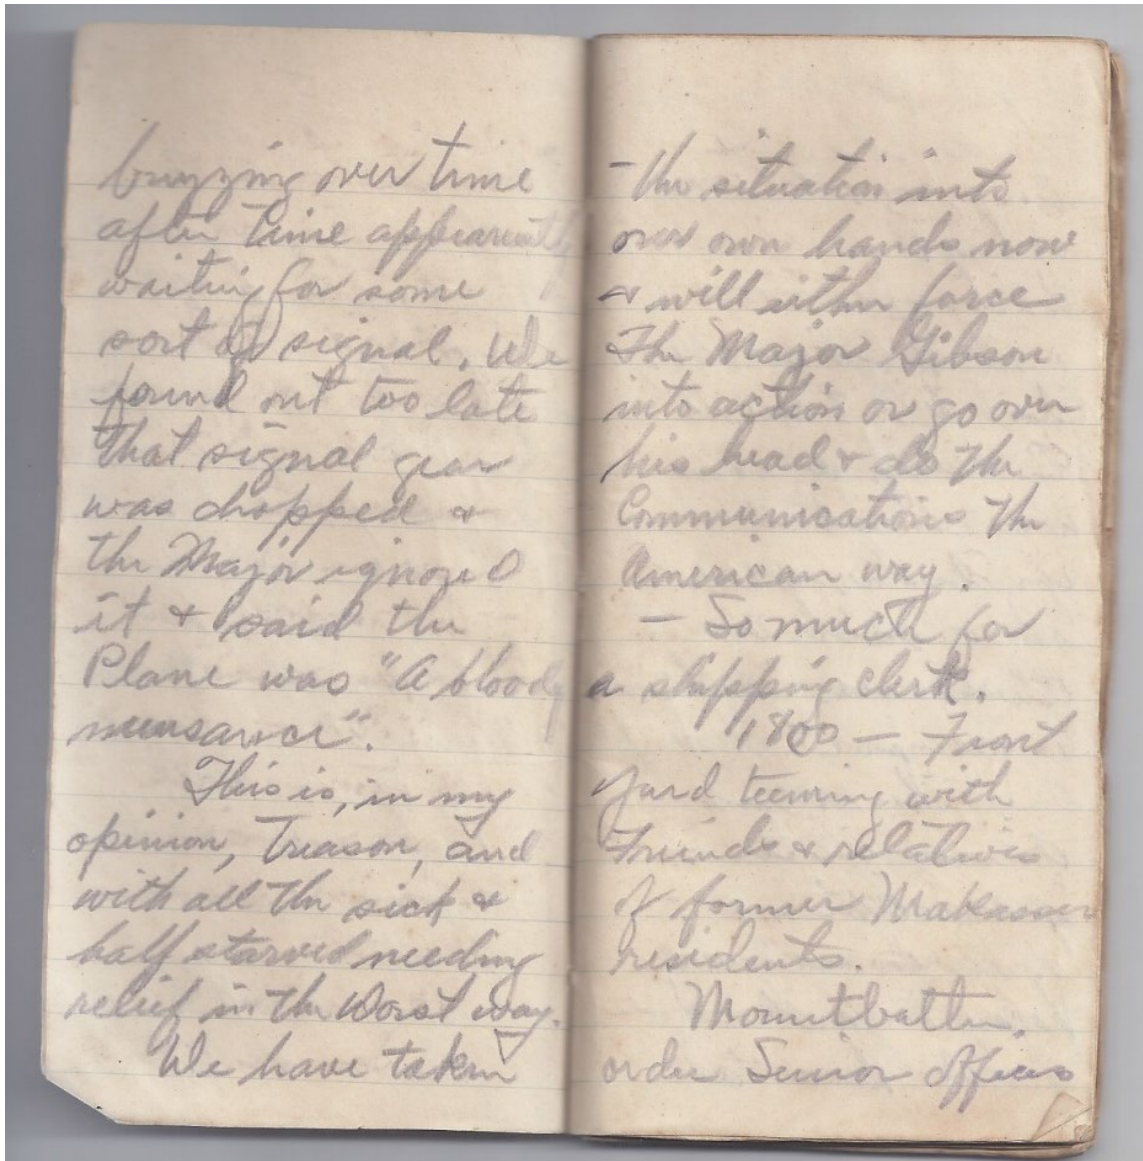 buzzing over time
after time appearently
waiting for some
sort of signal. We
found out too late
that signal gear
was dropped &
the Major ignored
it & said the
Plane was "A bloody
nuesance".
This is, in my
opinion, Treason, and
with all the sick &
half starved needing
relief in the worst way.
We have taken
- the situation into
our own hands now
& will either force
the Major Gibson
into action or go over
his head & do the
Communications the
American way.
- So much for
a shipping clerk.
1800 - Front
yard teeming with
Friends & relatives
of former Makassar
residents.
Mountbatten.
order Senior Officers